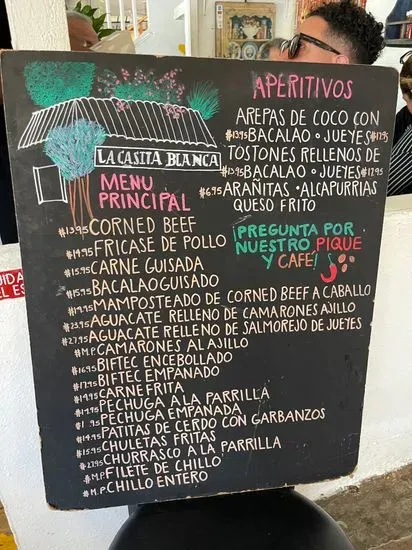 LA CASITA BLANCA
MENU
PRINCIPAL
$13.95 CORNED BEEF
$14.95 FRICASE DE POLLO
$15.95 CARNE GUISADA
$15.95 BACALAO GUISADO
$19.95 MAMPOSTEADO DE CORNED BEEF A CABALLO
$25.95 AGUACATE RELLENO DE CAMARONES AJILLO
$27.95 AGUACATE RELLENO DE SALMOREJO DE JUEYES
$M.P. CAMARONES AL AJILLO
$16.95 BIFTEC ENCEBOLLADO
$17.95 BIFTEC EMPANADO
$19.95 CARNE FRITA
$17.95 PECHUGA A LA PARRILLA
PECHUGA EMPANADA
$14.95 PATITAS DE CERDO CON GARBANZOS
$15.95 CHULETAS FRITAS
$27.95 CHURRASCO A LA PARRILLA
$M.P. FILETE DE CHILLO
$M.P. CHILLO ENTERO
APERITIVOS
AREPAS DE COCO CON
$13.95 BACALAO • JUEYES $17.95
TOSTONES RELLENOS DE
$13.95 BACALAO • JUEYES $17.95
$6.95 ARAÑITAS • ALCAPURRIAS
QUESO FRITO
¡PREGUNTA POR
NUESTRO PIQUE
Y CAFÉ!